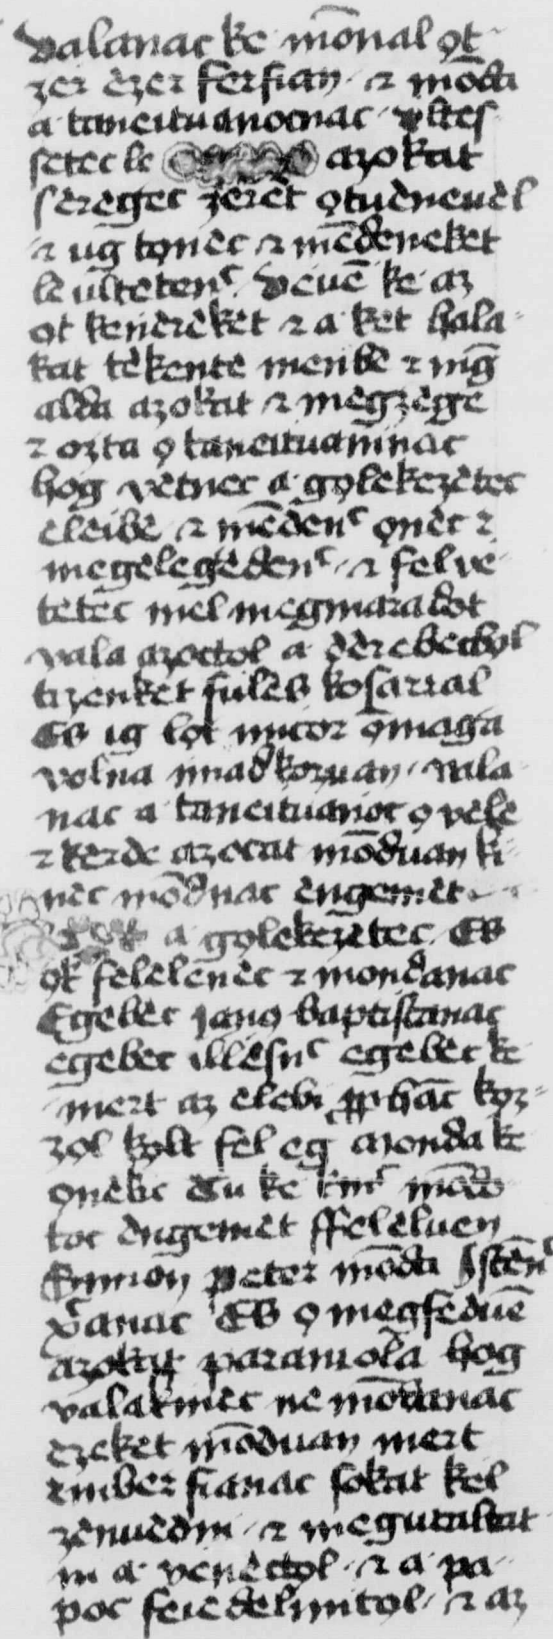 valanac ke mōnal ǫt
zer ezer ferfian · ⁊ mōda
a taneituanocnac vltes
setec le azokat
sèregec zerèt ǫtuèneuèl
⁊ ug tǫnèc ⁊ mēdeneket
le ultetenᶜ Veuē ke az
ǫt kenèrèket ⁊ a ket hala
kat tèkente menbè ⁊ mḡ
alda azokat ⁊ megzège
⁊ ozta ǫ taneituaninac
hog vètnec a gǫlekezètec
eleibè ⁊ mēdenᶜ ǫnèc ⁊
megelegèdenᶜ · ⁊ fel ve
tètec mel megmaradot
vala azoctol a dèrebècbǫl
tizenkèt fules kosarral
Es ig lǫt micor ōmaga
volna imadkozuan · vala
nac a taneituanoc ǫ vele
⁊ kerde azocat mōduan ki
nèc mōdnac èngemet
a gǫlekezètec Es
ǫk felelenèc ⁊ mondanac
Egebèc janǫs baptistanac
egebec illèsnᶜ egebec ke
mert az elebi pphac kǫz
zǫl kǫlt fel eg monda ke
ǫnèkic Tu ke kinᶜ mōdo
toc èngemet ffelèluen
Symon peter mōda Istēnᶜ
xr̄anac Es ǫ megfeduē
azokat parancola hog
valakinèc ne mōdanac
ezeket mōduan mert
ember fianac sokat kel
zènuèdni · ⁊ megutaltat
ni a venèctǫl · ⁊ a pa
poc feiedelmitǫl · ⁊ az